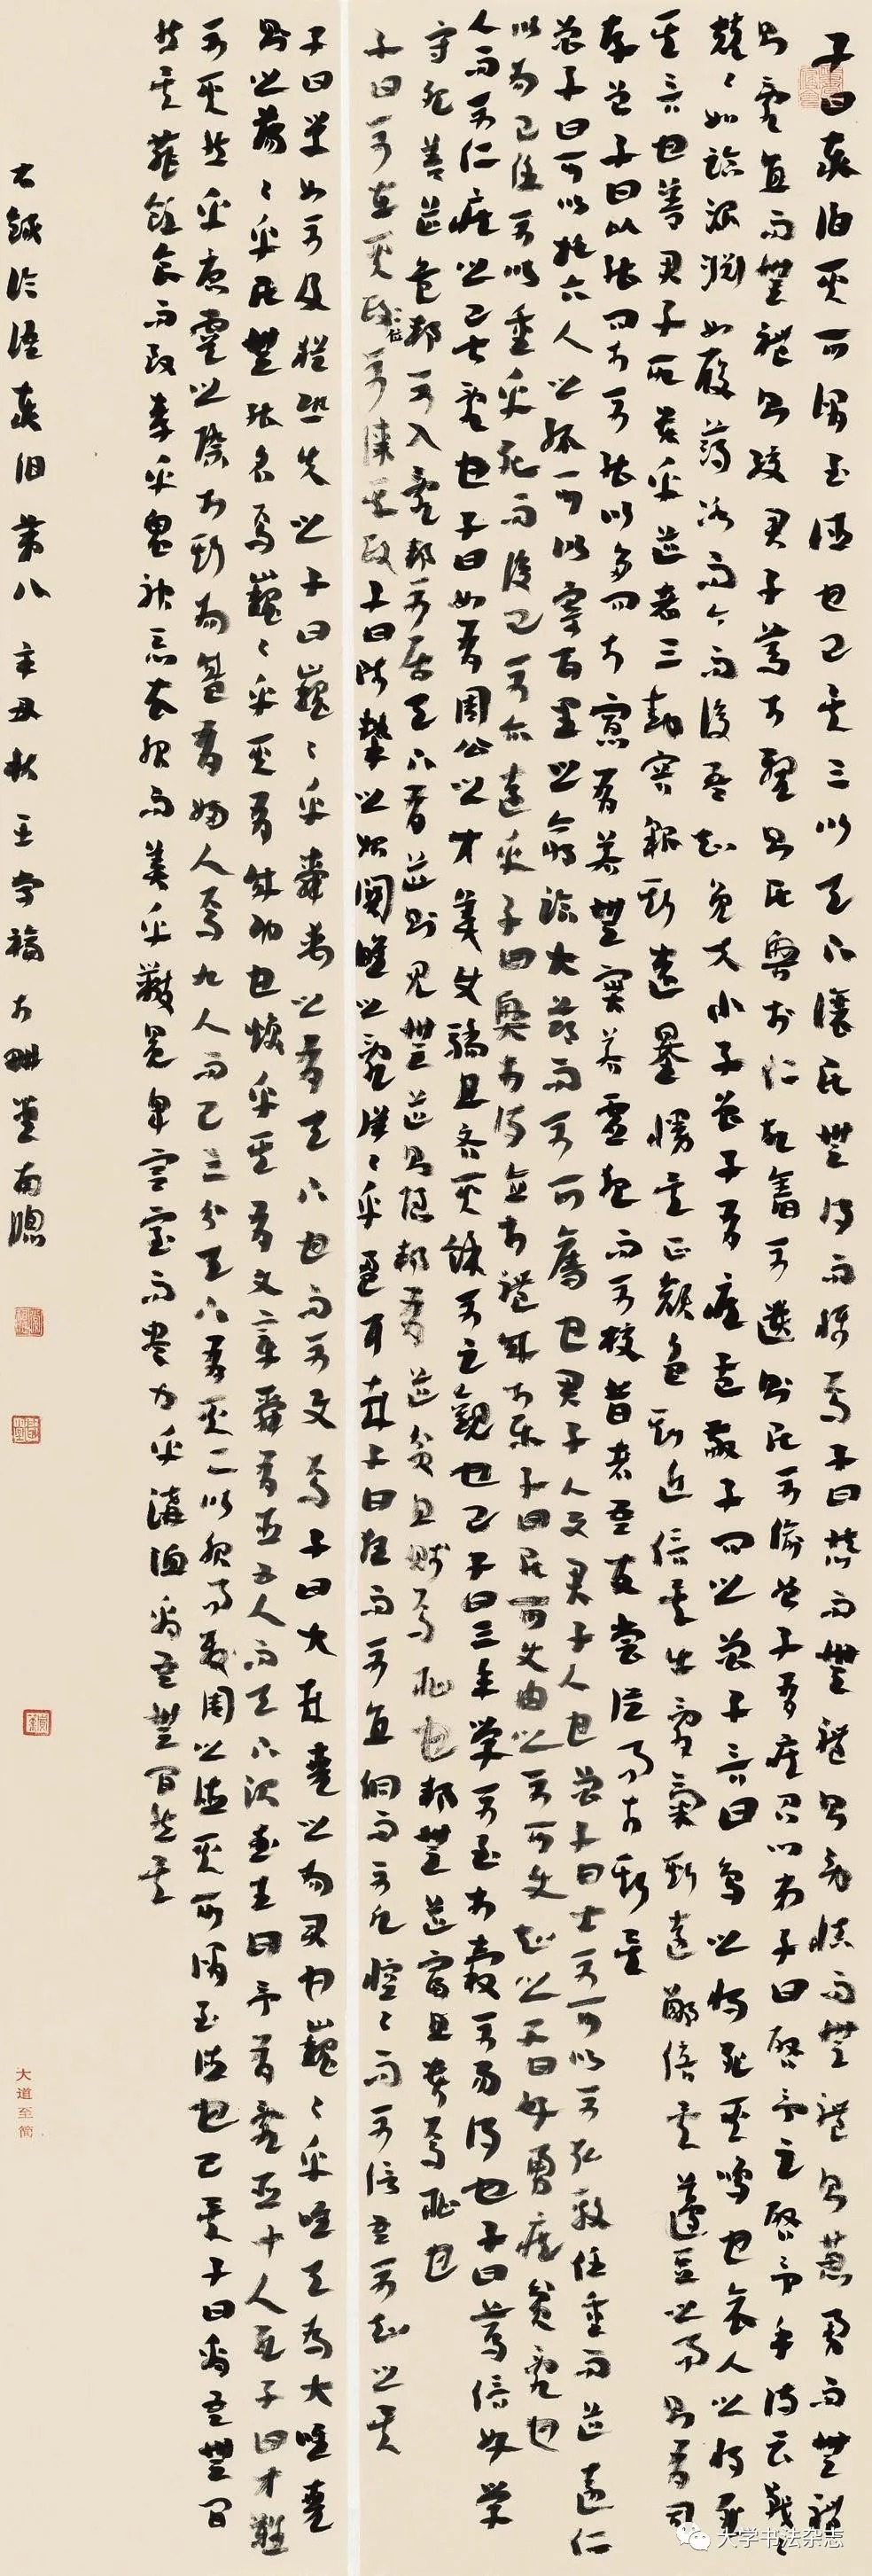 子曰泰伯其可謂至德也已矣三以天下讓民無得而稱焉子曰恭而無禮則勞慎而無禮則葸勇而無禮
則亂直而無禮則絞君子篤於親則民興於仁故舊不遺則民不偷曾子有疾召門弟子曰啟予足啟予手詩云戰戰
兢兢如臨深淵如履薄冰而今而後吾知免夫小子曾子有疾孟敬子問之曾子言曰鳥之將死其鳴也哀人之將死
其言也善君子所貴乎道者三動容貌斯遠暴慢矣正顏色斯近信矣出辭氣斯遠鄙倍矣籩豆之事則有司
存曾子曰以能問於不能以多問於寡有若無實若虛犯而不校昔者吾友嘗從事於斯矣
曾子曰可以托六尺之孤可以寄百里之命臨大節而不可奪也君子人與君子人也曾子曰士不可以不弘毅任重而道遠仁
以為己任不亦重乎死而後已不亦遠乎子曰興於詩立於禮成於樂子曰民可使由之不可使知之子曰好勇疾貧亂也
人而不仁疾之已甚亂也子曰如有周公之才之美使驕且吝其餘不足觀也已子曰三年學不至於穀不易得也子曰篤信好學
守死善道危邦不入亂邦不居天下有道則見無道則隱邦有道貧且賤焉恥也邦無道富且貴焉恥也
子曰不在其位不謀其政子曰師摯之始關雎之亂洋洋乎盈耳哉子曰狂而不直侗而不愿悾悾而不信吾不知之矣
子曰學如不及猶恐失之子曰巍巍乎舜禹之有天下也而不與焉子曰大哉堯之為君也巍巍乎唯天為大唯堯
則之蕩蕩乎民無能名焉巍巍乎其有成功也煥乎其有文章舜有臣五人而天下治武王曰予有亂臣十人孔子曰才難
不其然乎唐虞之際於斯為盛有婦人焉九人而已三分天下有其二以服事殷周之德其可謂至德也已矣子曰禹吾無間
然矣菲飲食而致孝乎鬼神惡衣服而美乎黻冕卑宮室而盡力乎溝洫禹吾無間然矣
右錄論語泰伯第八 辛丑秋王
大道至簡
大学书法杂志